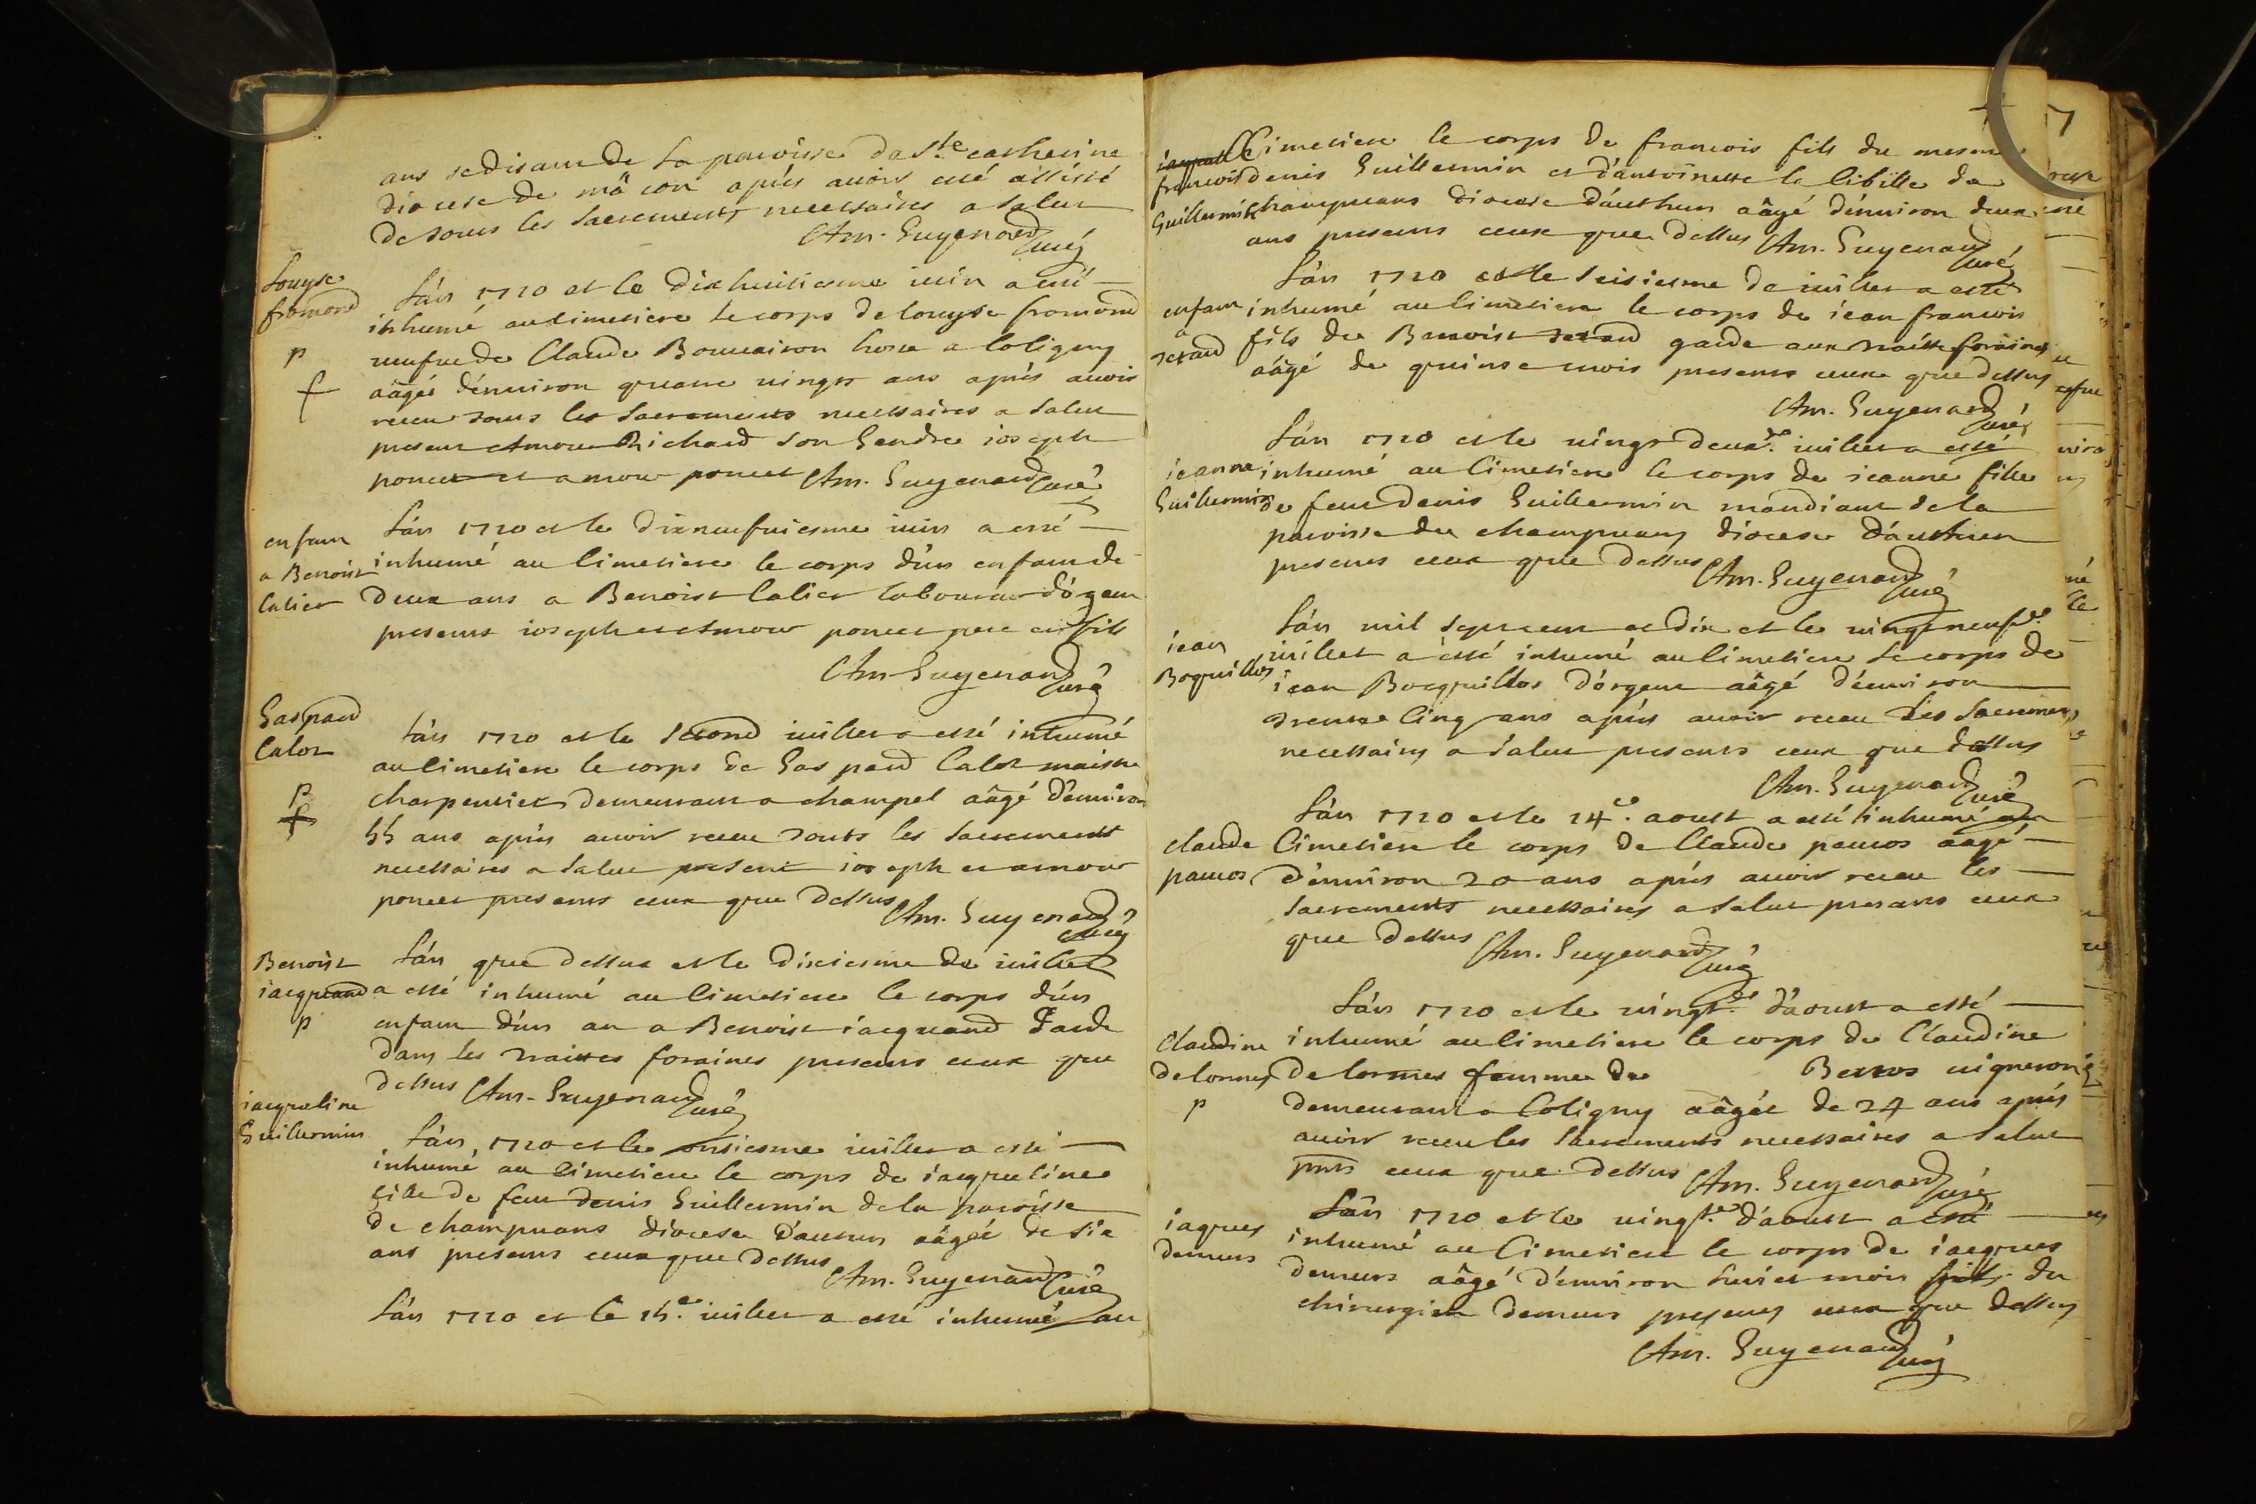 ans se disant de la paroisse de Ste catherine
diocese de mâcon aprés avoir esté assisté
de tous les sacrements necessaires a salut
Am. Guyenard curé
Louyse
fromond
p
f
L'an 1710 et le dix huitiesme iuin a esté
inhumé au Cimetiere le corps de louyse fromond
veufue de Claude Bouvairon hoste a Coligny
aâgée d'enuiron quatre vingts ans aprés auoir
receu tous les sacrements necessaires a salut
present Amour Richard son Gendre ioseph
poncet et amour poncet Am. Guyenard curé
enfant
a Benoist
Calier
L'an 1710 et le dixneufuiesme iuin a esté
inhumé au Cimetiere le corps d'un enfant de
deux ans a Benoist Calier laboureur d'
presents ioseph et Amour poncet pere et fils
Am Guyenard curé
Gaspard
Calot
p
f
L'an 1710 et le second iuillet a esté inhumé
au Cimetiere le corps de Gaspard Calot maistre
charpentier demeurant a champel aâgé d'enuiron
55 ans aprés auoir receu touts les sacrements
necessaires a salut present ioseph et amour
poncet presents ceux que dessus Am. Guyenard curé
Benoist
iacquand
p
L'an que dessus et le dixiesme de iuillet
a esté inhumé au Cimetiere le corps d'un
enfant d'un an a Benoist iacquand Garde
dans les traittes foraines presents ceux que
dessus Am. Guyenard curé
iacqueline
Guillermin
L'an 1710 et le onsiesme iuillet a esté
inhumé au Cimetiere le corps de iacqueline
fille de feu denis Guillermin de la paroisse
de champuans diocese d'autun aâgée de six
ans presents ceux que dessus
Am. Guyenard curé
L'an 1710 et le 15e. iuillet a esté inhumé au
francois
Guillermin
Cimetiere le corps de francois fils du mesme
denis Guillermin et d'antoinette de
champuans diocese d'authun aâgé d'enuiron deux
ans presents ceux que dessus Am. Guyenard
curé
enfant
a
terand
L'an 1710 et le seisiesme de iuillet a esté
inhumé au Cimetiere le corps de iean francois
fils de Benoist terand garde aux traitte foraines
aâgé de quinse mois presents ceux que dessus
Am. Guyenard
curé
ieanne
Guillermin
L'an 1710 et le vingt deuxe. iuillet a esté
inhumé au Cimetiere le corps de ieanne fille
de feu denis Guillermin mandiant de la
paroisse de champuans diocese d'authun
presents ceux que dessus Am. Guyenard
curé
iean
Boquillos
L'an mil sept cent et dix et le vingtneufe.
iuillet a esté inhumé au Cimetiere le corps de
iean Bocquillos d'orgent aâgé d'enuiron
trente Cinq ans aprés auoir receu les sacrements
necessaires a salut presents ceux que dessus
Am. Guyenard
curé
claude
panos
L'an 1710 et le 14e. aoust a esté inhumé au
Cimetiere le corps de Claude panos aâgé
d'enuiron 20 ans aprés auoir receu les
sacrements necessaires a salut presents ceux
que dessus Am. Guyenard
curé
Claudine
delormes
p
L'an 1710 et le vingte. d'aoust a esté
inhumé au Cimetiere le corps de Claudine
delormes femme de Berros vigneron
demeurant a Coligny aâgée de 24 ans aprés
auoir receu les sacrements necessaires a salut
pnts ceux que dessus Am. Guyenard
curé
iaques
demurs
L'an 1710 et le vingte. d'aoust a esté
inhumé au Cimetiere le corps de iacques
demurs aâgé d'enuiron huict mois fils du
chirurgien demurs presents ceux que dessus
Am. Guyenard curé